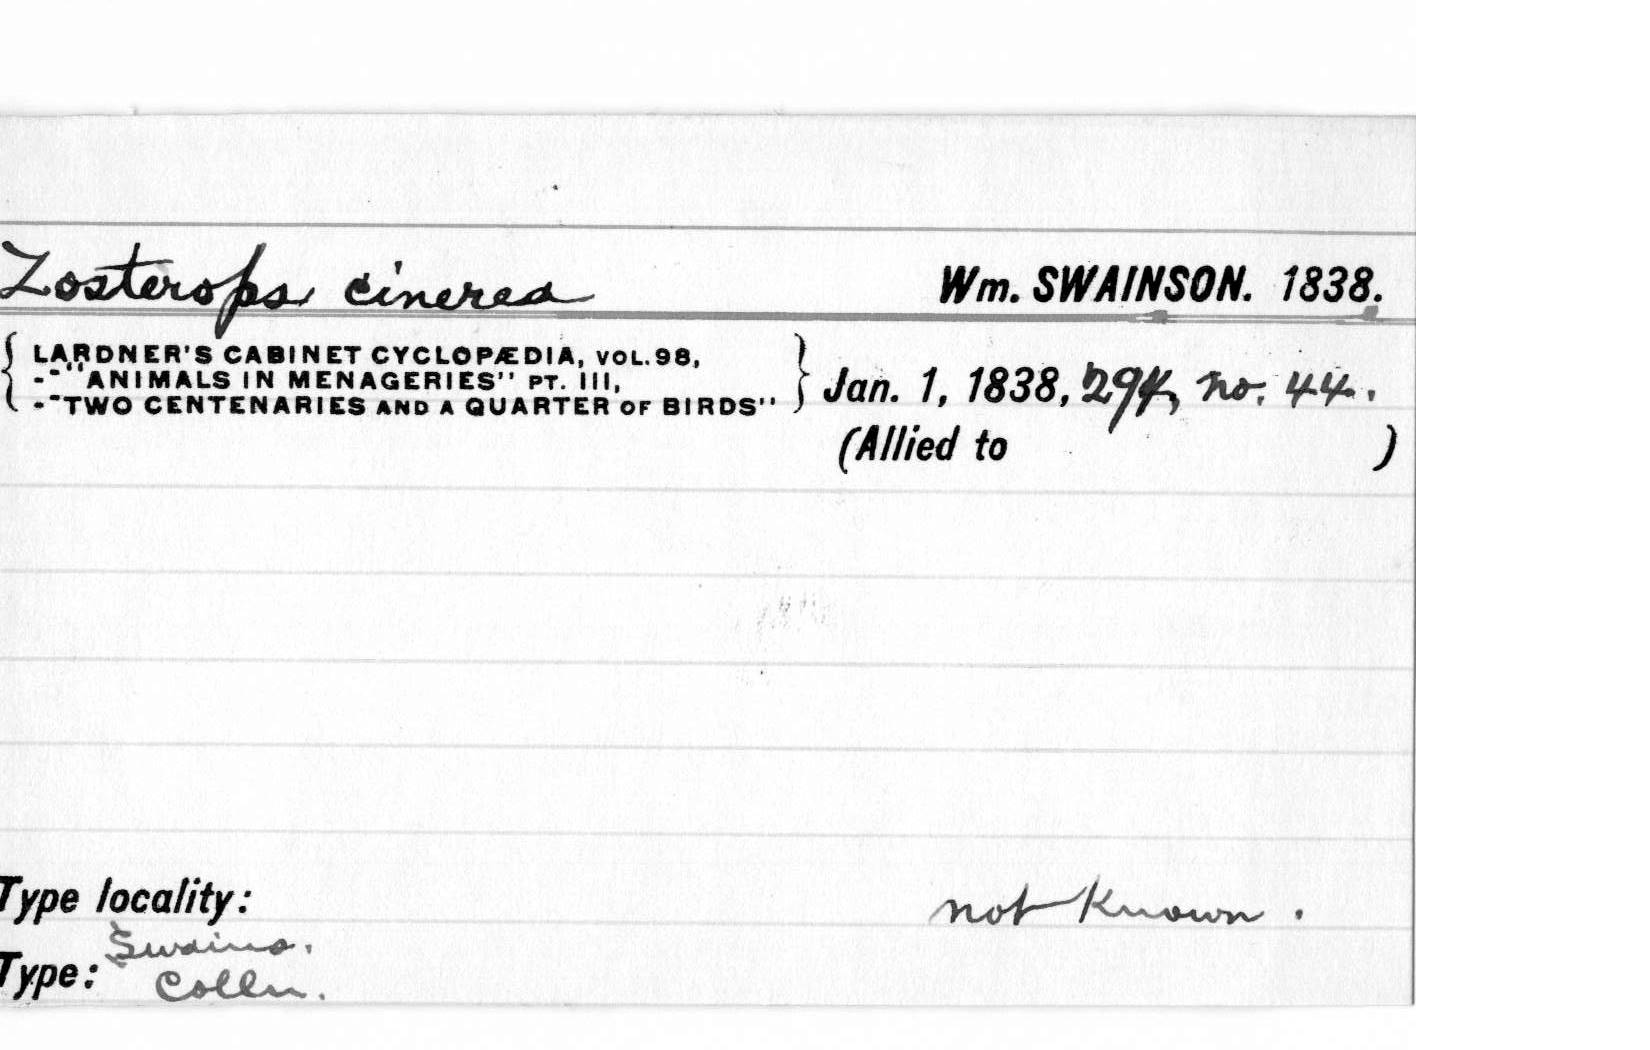 Zosterops cinerea Wm. SWAINSON. 1838.
{ LARDNER'S CABINET CYCLOPÆDIA, VOL. 98,
- - "ANIMALS IN MENAGERIES" PT. III, } Jan. 1, 1838, 294, no. 44.
- - "TWO CENTENARIES AND A QUARTER OF BIRDS"
(Allied to )
Type locality: not known.
Swains.
Type: Colln.